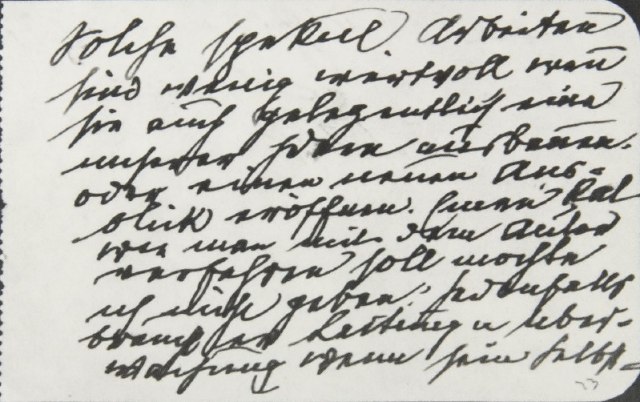 Solche spekul. Arbeiten
sind wenig wertvoll wenn
sie auch gelegentlich eine
unserer Ideen ausbauen
oder einen neuen Aus-
blick eröffnen. Rat
wie man mit dem Autor
verfahren soll möchte
ich nicht geben. Jedenfalls
braucht er Leitung u Über-
wachung wenn sein Selbst-